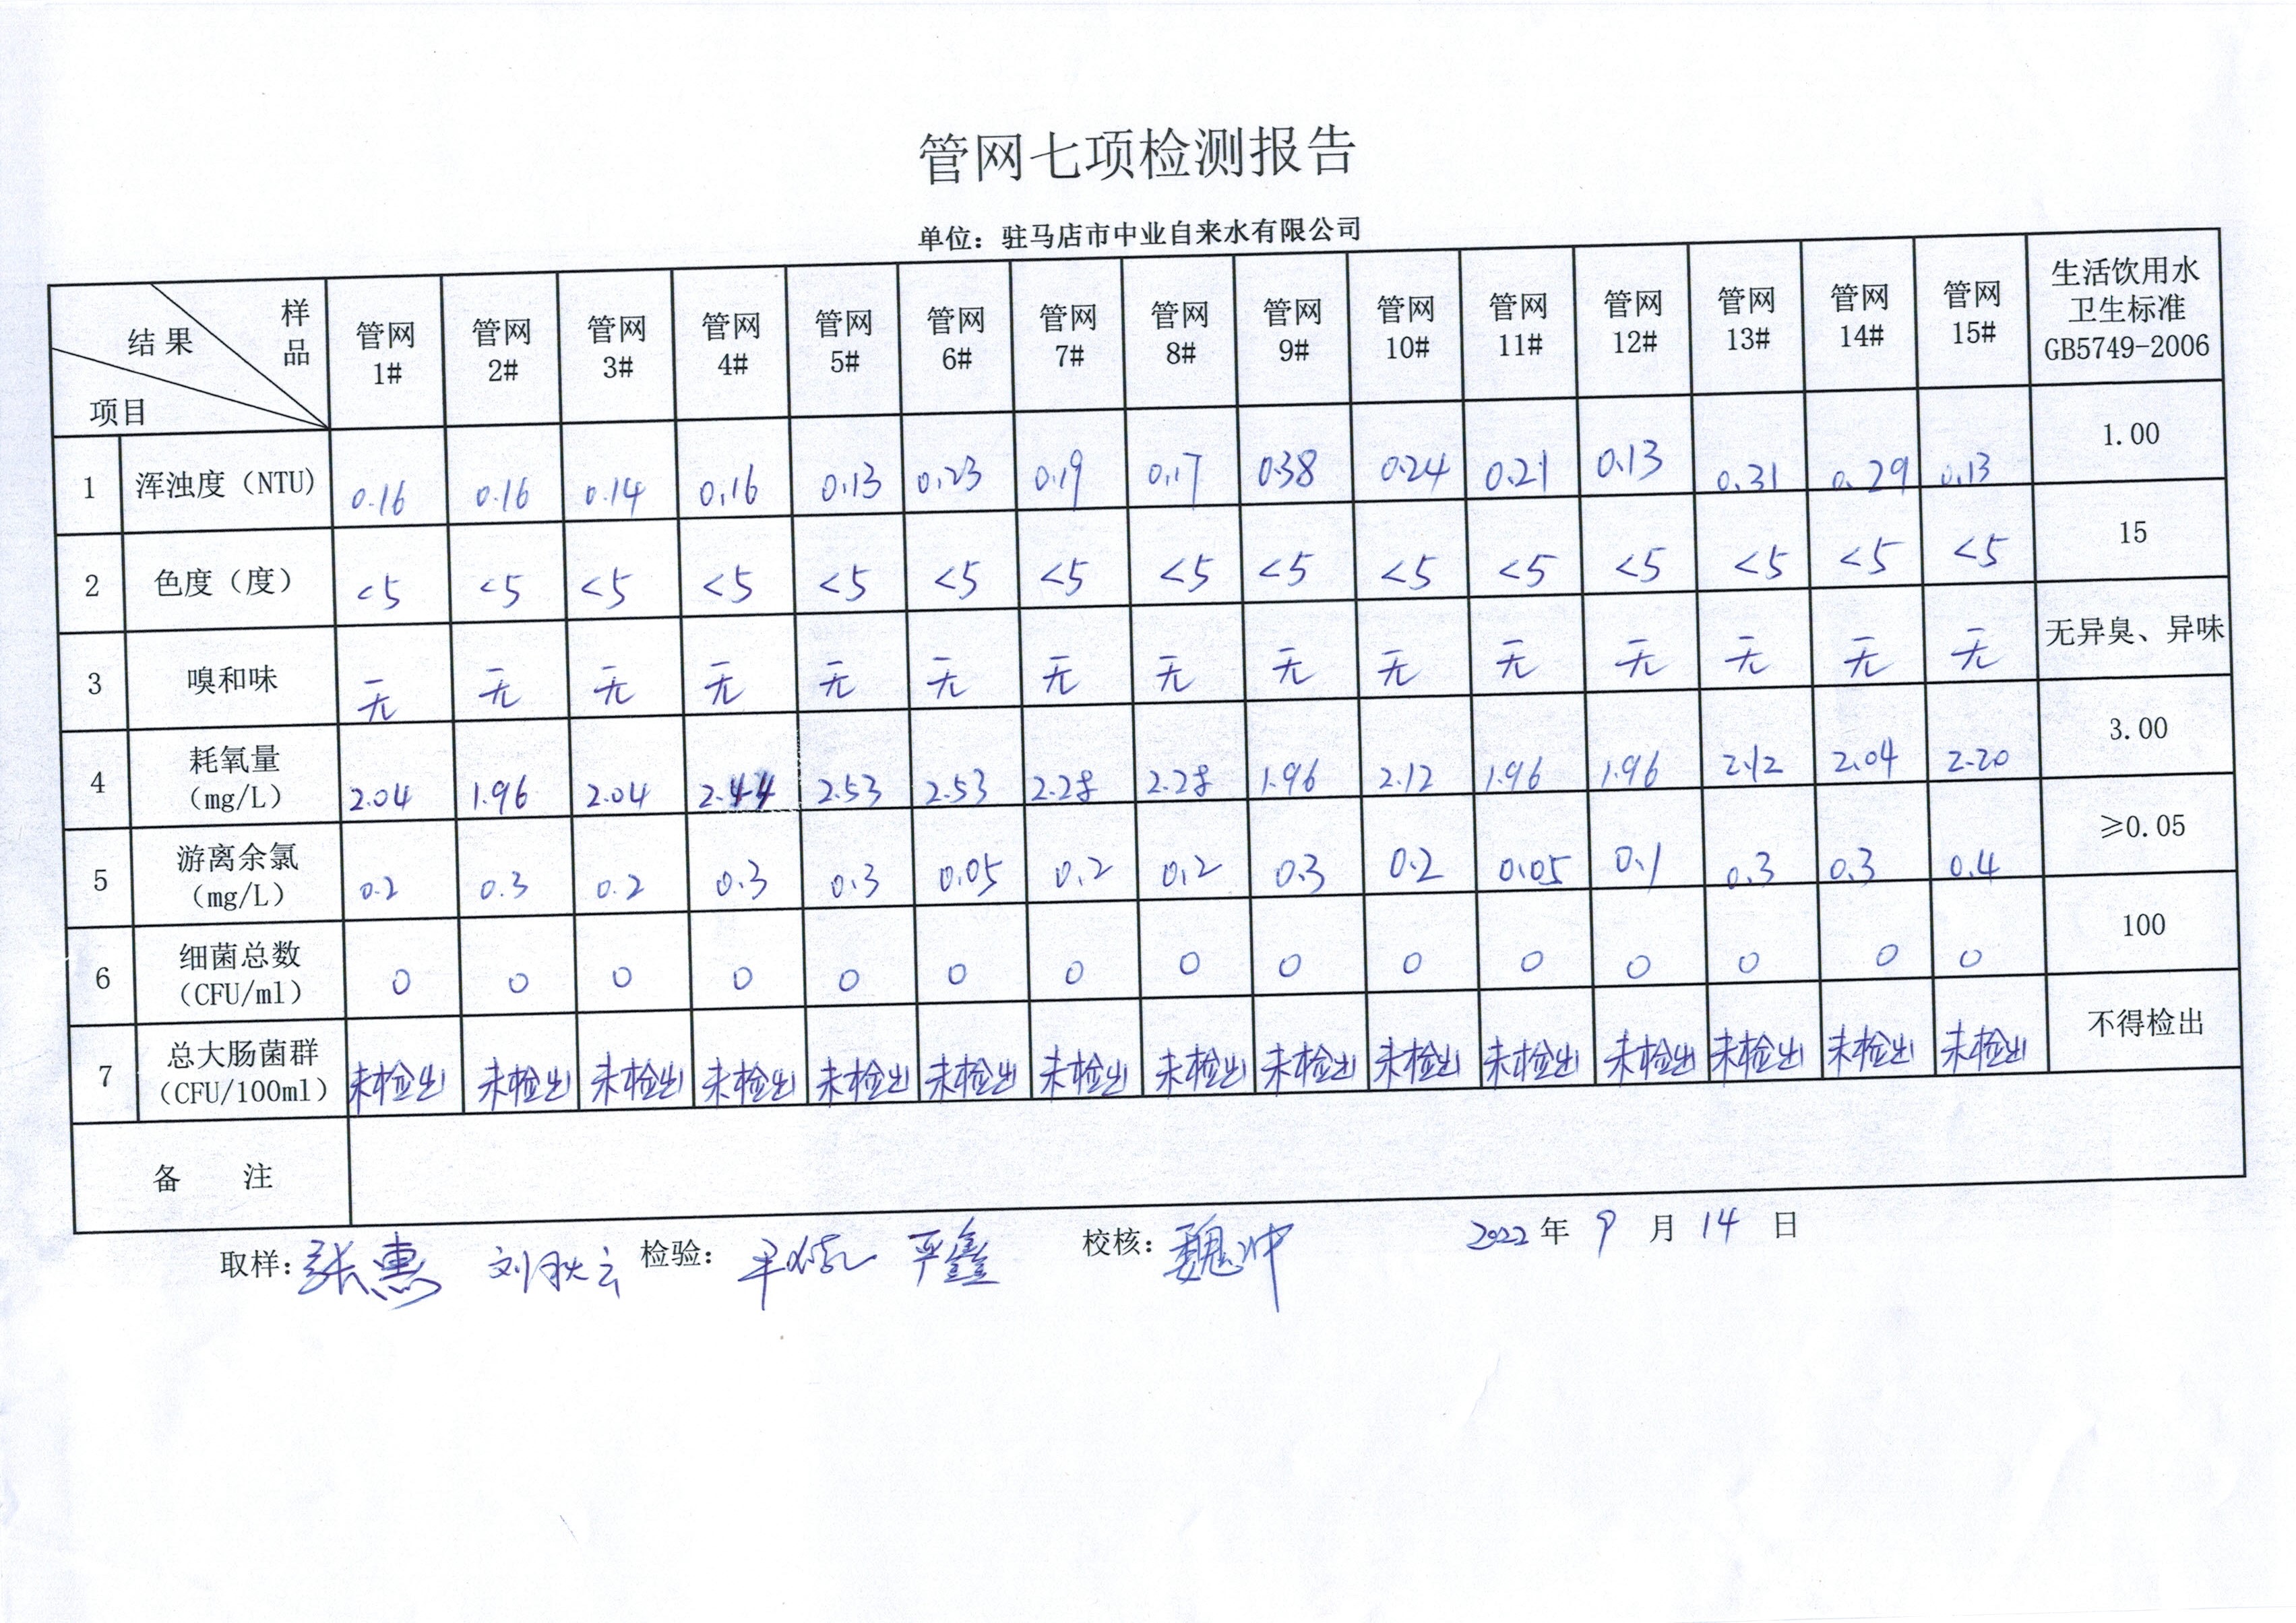 管网七项检测报告
单位：驻马店市中业自来水有限公司
结果 样品 项目 管网1# 管网2# 管网3# 管网4# 管网5# 管网6# 管网7# 管网8# 管网9# 管网10# 管网11# 管网12# 管网13# 管网14# 管网15# 生活饮用水卫生标准GB5749-2006
1 浑浊度（NTU） 0.16 0.16 0.14 0.16 0.13 0.23 0.19 0.17 0.38 0.24 0.21 0.13 0.31 0.29 0.13 1.00
2 色度（度） <5 <5 <5 <5 <5 <5 <5 <5 <5 <5 <5 <5 <5 <5 <5 15
3 嗅和味 无 无 无 无 无 无 无 无 无 无 无 无 无 无 无 无异臭、异味
4 耗氧量（mg/L） 2.04 1.96 2.04 2.44 2.53 2.53 2.28 2.28 1.96 2.12 1.96 1.96 2.12 2.04 2.20 3.00
5 游离余氯（mg/L） 0.2 0.3 0.2 0.3 0.3 0.05 0.2 0.2 0.3 0.2 0.05 0.1 0.3 0.3 0.4 ≥0.05
6 细菌总数（CFU/ml） 0 0 0 0 0 0 0 0 0 0 0 0 0 0 0 100
7 总大肠菌群（CFU/100ml） 未检出 未检出 未检出 未检出 未检出 未检出 未检出 未检出 未检出 未检出 未检出 未检出 未检出 未检出 未检出 不得检出
备 注
取样：张惠 刘秋云 检验： 平鑫 校核：魏冲 2022年9月14日